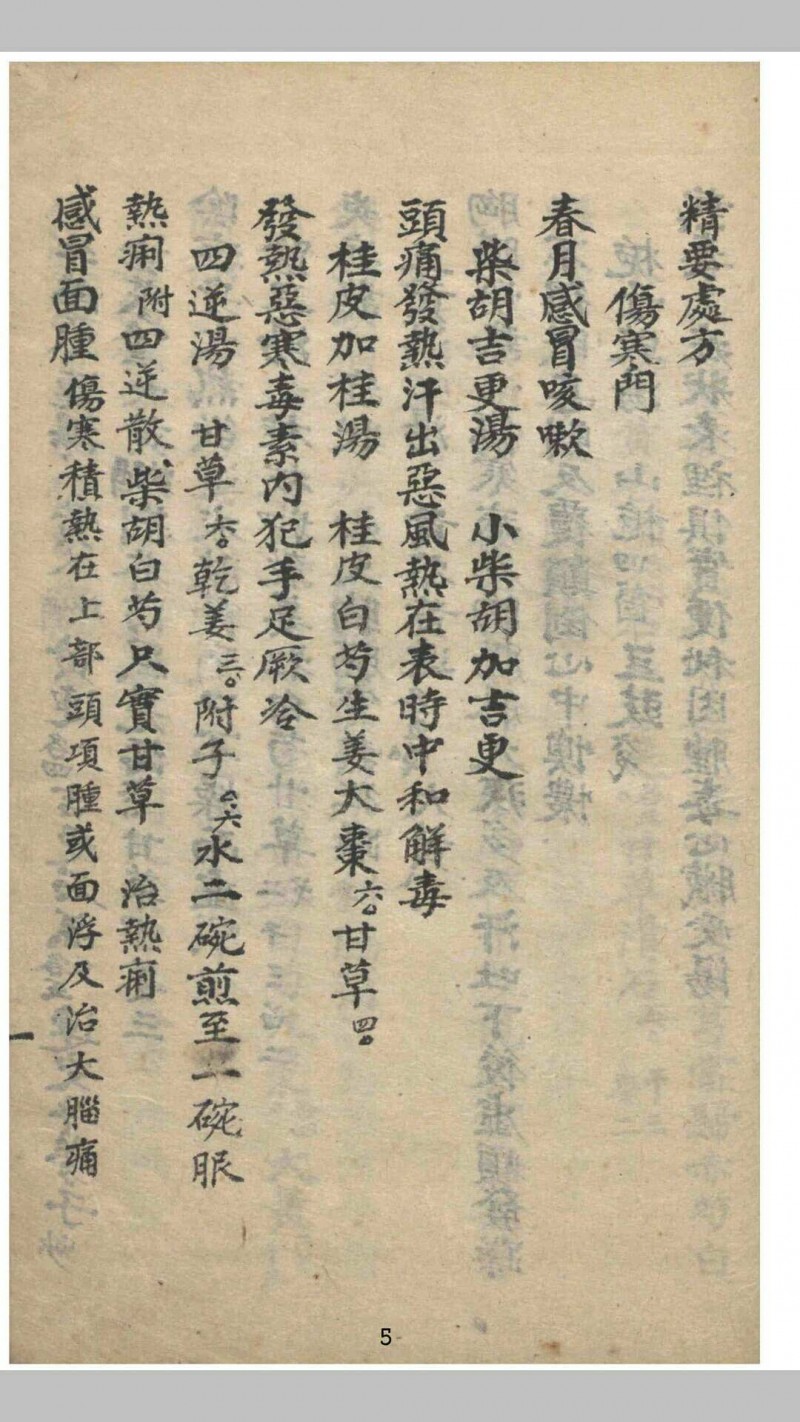 精要處方
傷寒門
春月感冒咳嗽
柴胡吉更湯 小柴胡加吉更
頭痛發熱汗出惡風熱在表時中和解毒
桂皮加桂湯 桂皮白芍生姜大棗六。甘草四。
發熱惡寒毒素内犯手足厥冷
四逆湯 甘草六。乾姜三。附子〇.六水二碗煎至一碗服
熱痢附四逆散柴胡白芍只實甘草 治熱痢
感冒面腫傷寒積熱在上部頭項腫或面浮及治大腦痛
一
5